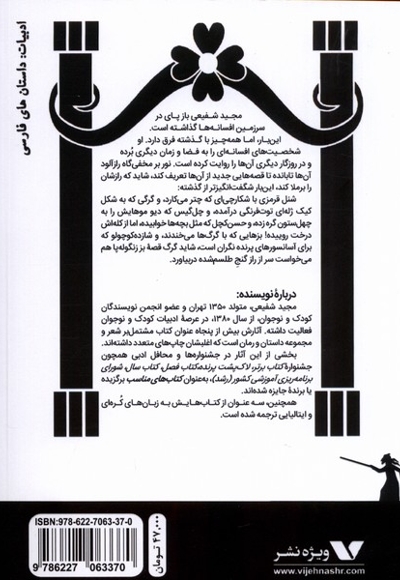 ادبیات: داستان های فارسی
مجید شفیعی باز پای در
سرزمین افسانه‌ها گذاشته است.
این‌بار، اما همه‌چیز با گذشته فرق دارد. او
شخصیت‌های افسانه‌ای را به فضا و زمان دیگری بُرده
و در روزگار دیگری آن‌ها را روایت کرده است. نور بر مخفی‌گاه رازآلود
آن‌ها تابانده تا قصه‌هایی جدید از آن‌ها تعریف کند، شاید که رازشان
را برملا کند، این‌بار شگفت‌انگیزتر از گذشته:
شنل قرمزی با شکارچی‌ای که چتر می‌کارد، و گرگی که به شکل
کیک ژله‌ای توت‌فرنگی درآمده، و چل‌گیس که دیو موهایش را به
چهل‌ستون گره زده، و حسن‌کچل که مثل بچه‌ها خوابیده، اما از کله‌اش
درخت روییده! بزهایی که با گرگ‌ها می‌خندند، و شازده‌کوچولو که
برای آسانسورهای پرنده نگران است، شاید گرگ قصهٔ بز زنگوله‌پا هم
می‌خواست سر از راز گنجِ طلسم‌شده دربیاورد.
دربارهٔ نویسنده:
مجید شفیعی، متولد ۱۳۵۰ تهران و عضو انجمن نویسندگان
کودک و نوجوان، از سال ۱۳۸۰، در عرصهٔ ادبیات کودک و نوجوان
فعالیت داشته. آثارش بیش از پنجاه عنوان کتاب مشتمل‌بر شعر و
مجموعه داستان و رمان است که اغلبشان چاپ‌های متعدد داشته‌اند.
بخشی از این آثار در جشنواره‌ها و محافل ادبی همچون
جشنوارهٔ کتاب برتر، لاک‌پشت پرنده، کتاب فصل، کتاب سال، شورای
برنامه‌ریزی آموزشی کشور (رشد)، به‌عنوان کتاب‌های مناسب برگزیده
یا برندهٔ جایزه شده‌اند.
همچنین، سه عنوان از کتاب‌هایش به زبان‌های کُره‌ای
و ایتالیایی ترجمه شده است.
ISBN: 978-622-7063-37-0
9 786227 063370
۴۷,۰۰۰ تومان
ویژه نشر
www.vijehnashr.com